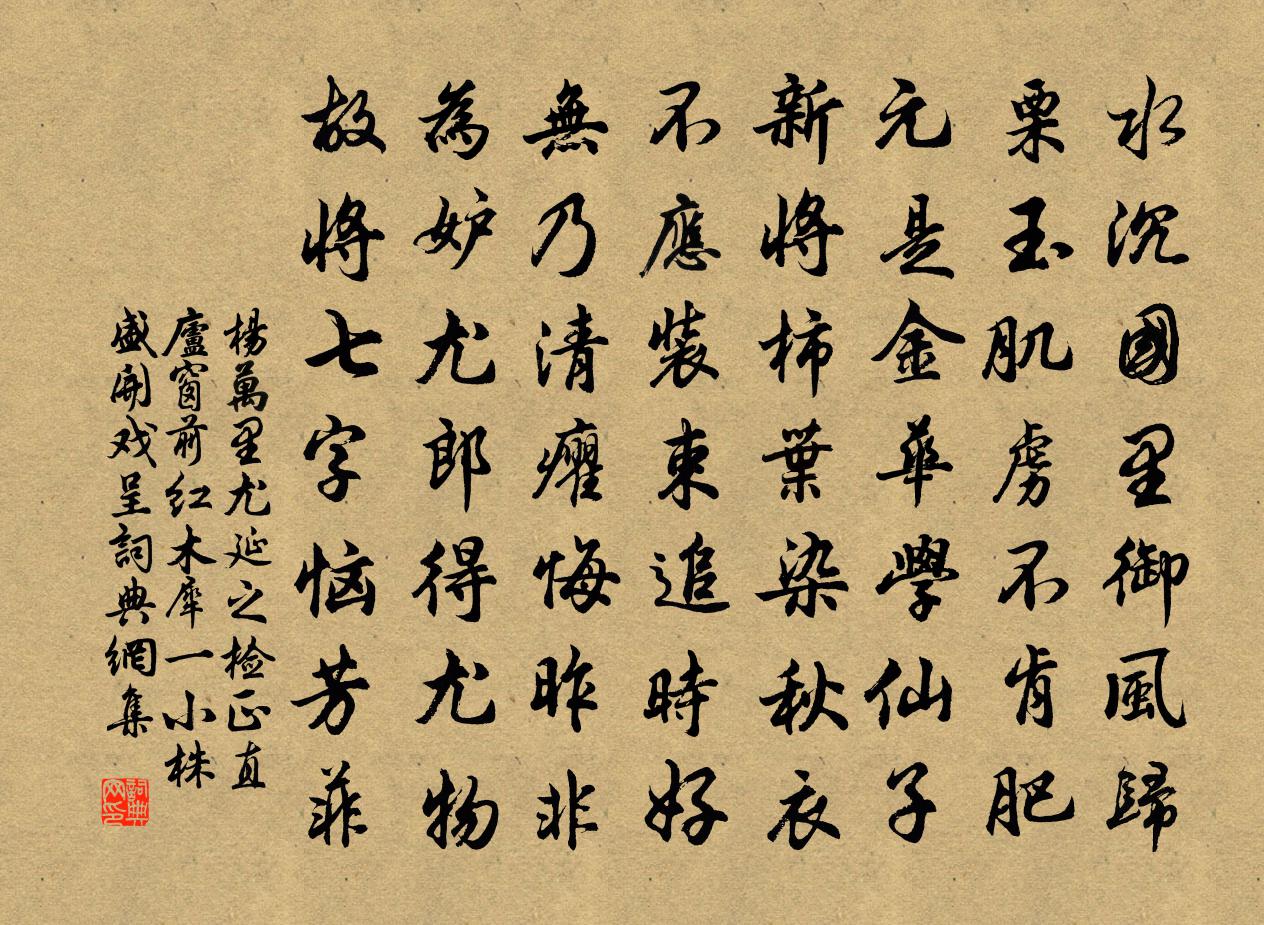 水沉國里御風歸
栗玉肌膚不肯肥
元是金華學仙子
新將柿葉染秋衣
不應裝束追時好
無乃清癯悔昨非
為妒尤郎得尤物
故將七字恼芳菲
楊萬里尤延之检正直
廬窗前红木犀一小株
盛開戏呈詞典網集
詞典网印